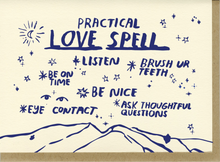 PRACTICAL
LOVE SPELL
*LISTEN
*BRUSH UR
TEETH
*BE ON
TIME
*BE NICE
*EYE CONTACT
*ASK THOUGHTFUL
QUESTIONS